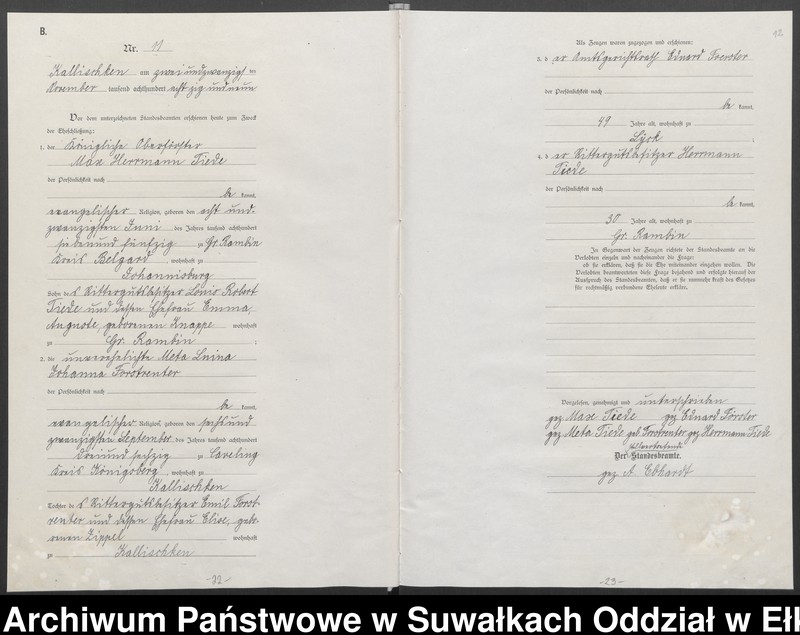 B.
Nr. 11
Kallischken am zweiundzwanzigsten
November tausend achthundert achtzig und neun
Vor dem unterzeichneten Standesbeamten erschienen heute zum Zweck
der Eheschließung:
1. der Königliche Oberförster
Max Herrmann Tiede
der Persönlichkeit nach
be kannt,
evangelischer Religion, geboren den acht und
zwanzigsten Juni des Jahres tausend achthundert
siebenund fünfzig zu Gr. Rambin
Kreis Belgard, wohnhaft zu
Johannisburg
Sohn des Rittergutsbesitzer Louis Robert
Tiede und dessen Ehefrau Emma
Auguste, geborenen Knappe wohnhaft
zu Gr. Rambin ;
2. die unverehelichte Meta
Johanna Forstrenter
der Persönlichkeit nach
be kannt,
evangelischer Religion, geboren den sechs und
zwanzigsten September des Jahres tausend achthundert
dreiund sechzig zu
Kreis Königsberg, wohnhaft zu
Kallischken
Tochter des Rittergutsbesitzer Emil Forst-
renter und dessen Ehefrau Elise, gebo-
renen Zippel wohnhaft
zu Kallischken
-22-
12.
Als Zeugen waren zugezogen und erschienen:
3. der Amtsgerichtsrath Eduard Foerster
der Persönlichkeit nach
be kannt,
49 Jahre alt, wohnhaft zu
Lyck ;
4. der Rittergutsbesitzer Herrmann
Tiede
der Persönlichkeit nach
be kannt,
30 Jahre alt, wohnhaft zu
Gr. Rambin
In Gegenwart der Zeugen richtete der Standesbeamte an die
Verlobten einzeln und nacheinander die Frage:
ob sie erklären, daß sie die Ehe miteinander eingehen wollen. Die
Verlobten beantworteten diese Frage bejahend und erfolgte hierauf der
Ausspruch des Standesbeamten, daß er sie nunmehr kraft des Gesetzes
für rechtmäßig verbundene Eheleute erkläre.
Vorgelesen, genehmigt und unterschrieben
gez Max Tiede gez Eduard Förster
gez Meta Tiede geb Forstrenter gez Herrmann Tiede
Der Standesbeamte.
gez A. Ebhardt
-23-
Archiwum Państwowe w Suwałkach Oddział w Ełk